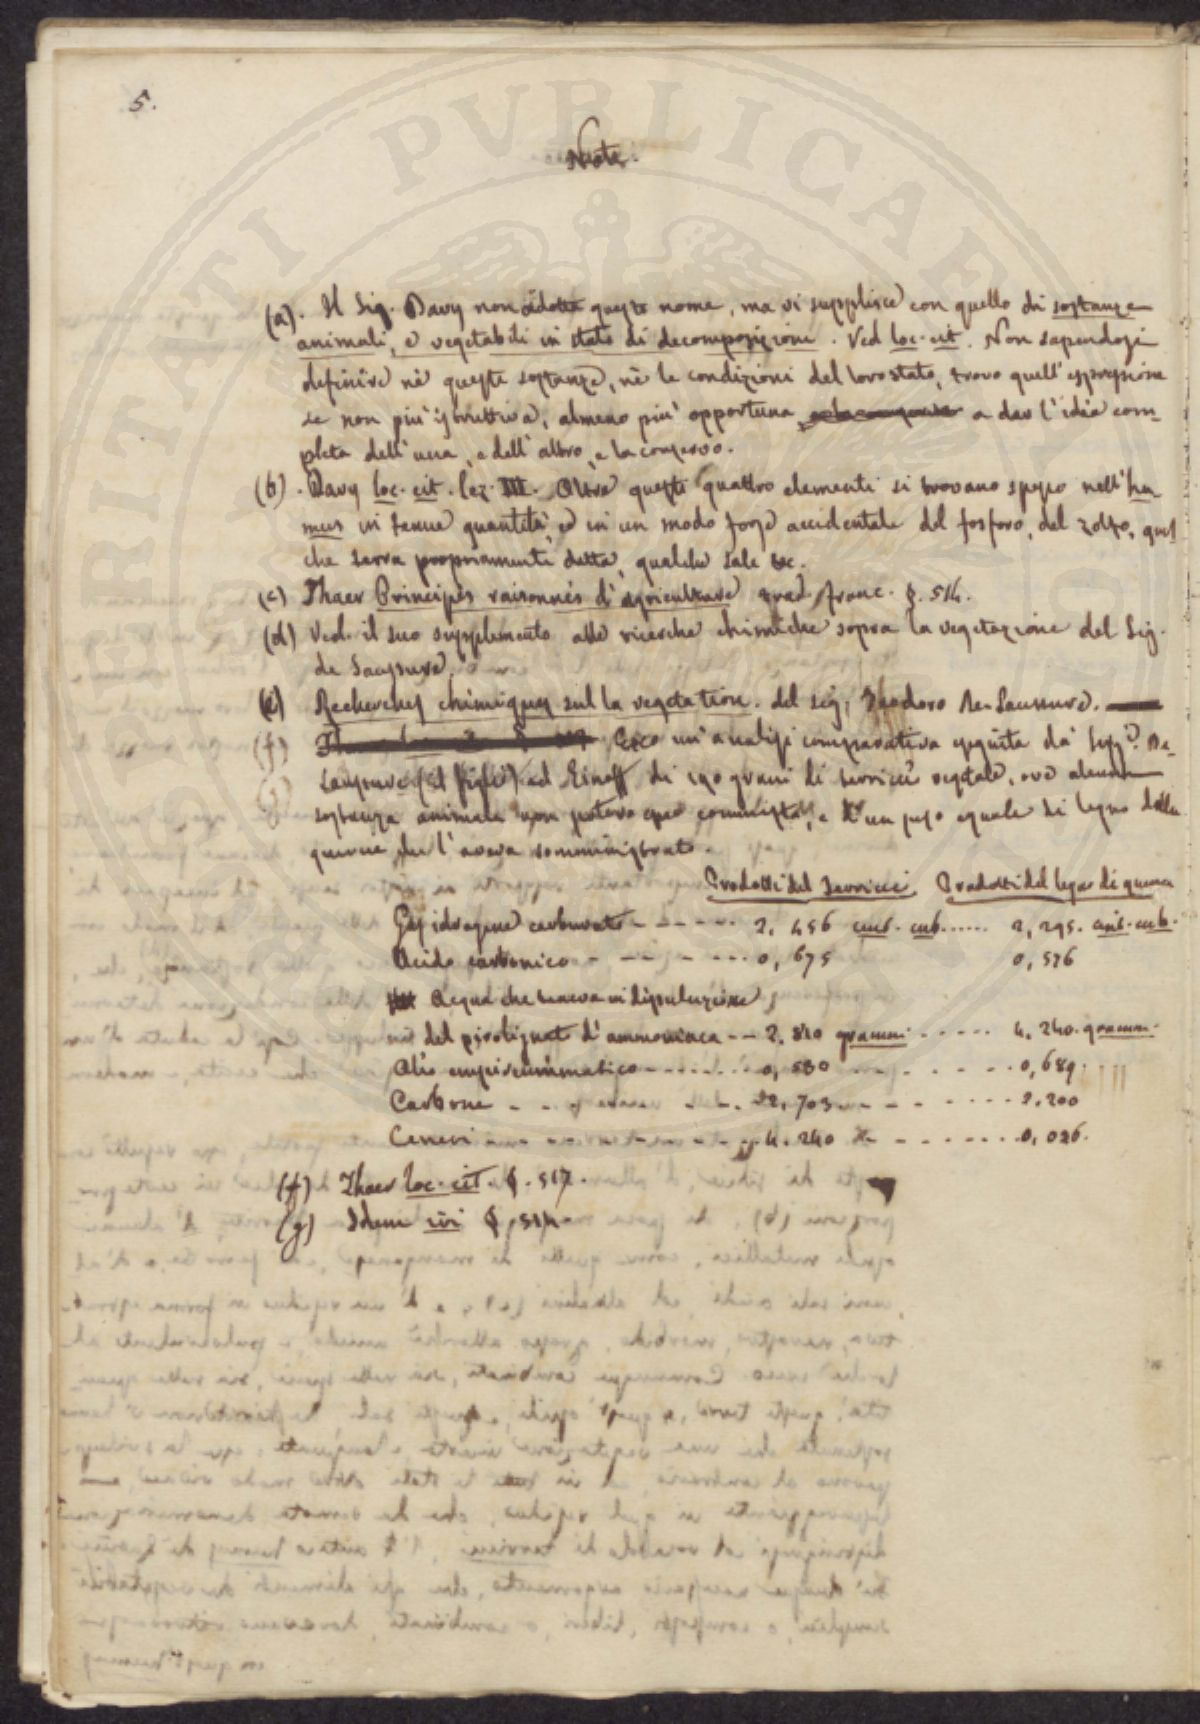 5.
Note.
(a). Il Sig. Davy non adotta questo nome, ma vi supplisce con quello di sostanze
animali, e vegetabili in stato di decomposizione. Ved loc. cit. Non sapendosi
definire nè queste sostanze, nè le condizioni del loro stato, trovo quell'espressione
se non più istruttiva, almeno più opportuna a dar l'idea com-
pleta dell'una, e dell'altro, e la conservo.
(b). Davy loc. cit. lez. III. Oltre questi quattro elementi si trovano spesso nell'hu
mus in tenue quantità, ed in un modo forse accidentale del fosforo, del zolfo, qual
che terra propriamente detta, qualche sale &c.
(c) Thaer Principes raisonnés d'agriculture trad. franc. §. 514.
(d) Ved. il suo supplemento alle ricerche chimiche sopra la vegetazione del Sig.
de Saussure.
(e) Recherches chimiques sul la vegetation. del sig. Teodoro De-Saussure.
(f) Ecco un'analisi comparativa eseguita da' Sigg.i De-
Saussure (il figlio) ed Einoff di grani di terriccio vegetale, ove alcuna
sostanza animale non poteva esser commista, e d'un peso eguale di legno della
quercia, che l'aveva somministrato.
Prodotti del Terriccio. Prodotti del legno di quercia
Gas idrogene carburato - - - - - - 2, 456 cent. cub...... 2, 295. cent. cub.
Acido carbonico - - - - - ... 0, 675 0, 576
Acqua che teneva in dissoluzione
del pirolignato d'ammoniaca - - 2, 810 grammi - - - - - 4. 240. grammi.
Olio empireumatico - - - - - 0, 530 - - - - - - 0, 689.
Carbone - - - - - 2, 703 - - - - - - 2. 200
Ceneri - - - - - 4. 240 - - - - - - 0, 026.
(f) Thaer loc. cit. §. 517.
(g) Idem ivi §. 514
PERITATI PUBLICAE